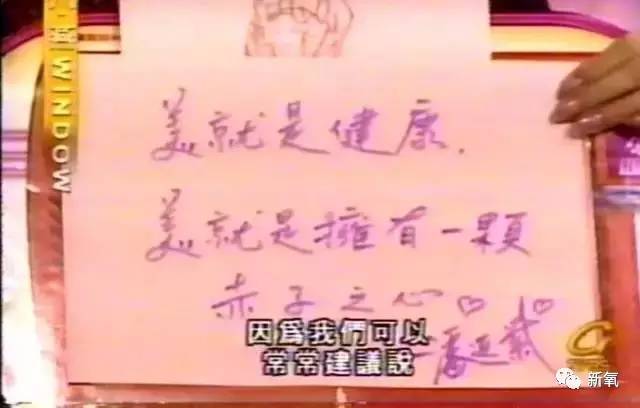 WINDOW
美就是健康.
美就是擁有一顆
赤子之心♡ ♡
潘迎紫
因爲我們可以
常常建議說
新氧